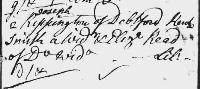 Joseph
Rippington of Debtford Kent
Smith a Widr & Eliz. Read
of Do Widw Lic.